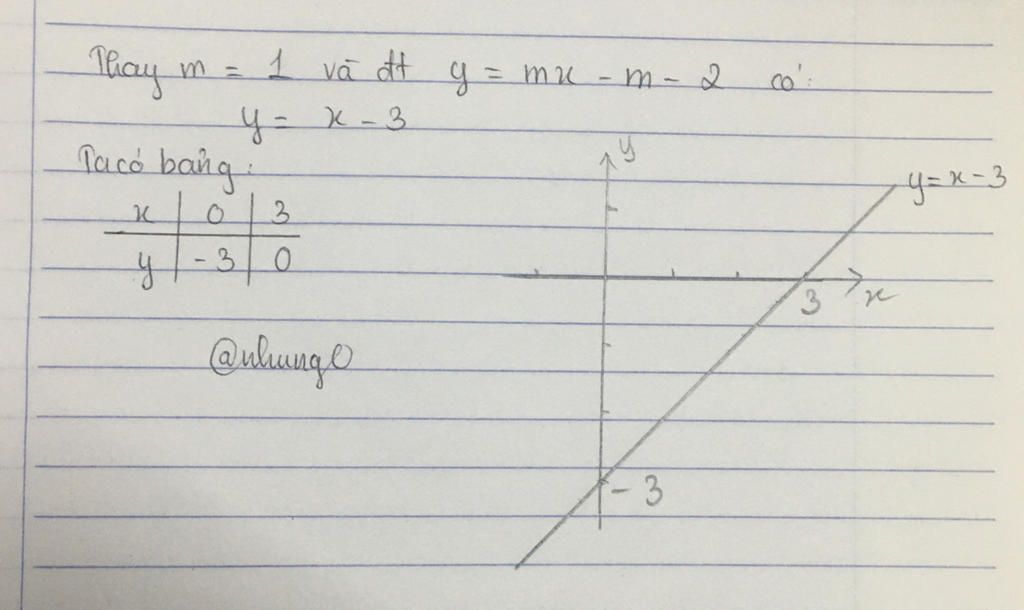 Thay m = 1 và đt y = mx - m - 2 có:
y = x - 3
Ta có bảng:
x | 0 | 3
y | -3 | 0
@nhungl
y
y = x - 3
3
x
-3